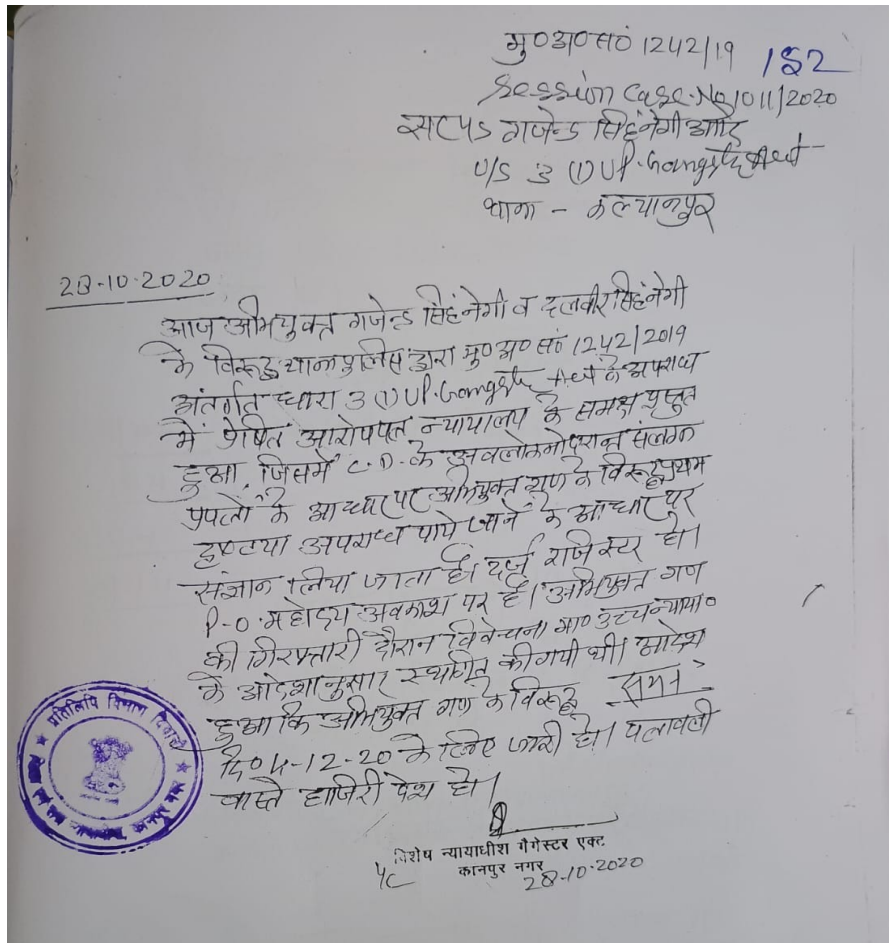 मु0अ0सं0 1242/19
Session Case No 1011/2020
गजेन्द्र सिंह नेगी आदि
U/S 3 (1) UP. Gangster Act
थाना - कल्यानपुर
28-10-2020
आज अभियुक्त गजेन्द्र सिंह नेगी व दलवीर सिंह नेगी
के विरूद्ध थाना पुलिस द्वारा मु0अ0सं0 1242/2019
अंतर्गत धारा 3 (1) UP. Gangster Act के अपराध
में प्रेषित आरोपपत्र न्यायालय के समक्ष प्रस्तुत
हुआ, जिसमें C.D. के अवलोकनोपरान्त संलग्न
प्रपत्रों के आधार पर अभियुक्त गण के विरूद्ध प्रथम
दृष्टया अपराध पाये जाने के आधार पर
संज्ञान लिया जाता है। दर्ज रजिस्टर हो।
P-O महोदय अवकाश पर हैं। अभियुक्त गण
की गिरफ्तारी दौरान विवेचना मा0 उच्च न्याया0
के आदेशानुसार स्थगित की गयी थी। आदेश
हुआ कि अभियुक्त गण के विरूद्ध समन
दि0 4-12-20 के लिए जारी हो। पत्रावली
वास्ते हाजिरी पेश हो।
विशेष न्यायाधीश गैगेस्टर एक्ट
कानपुर नगर
28-10-2020
प्रतिलिपि विभाग